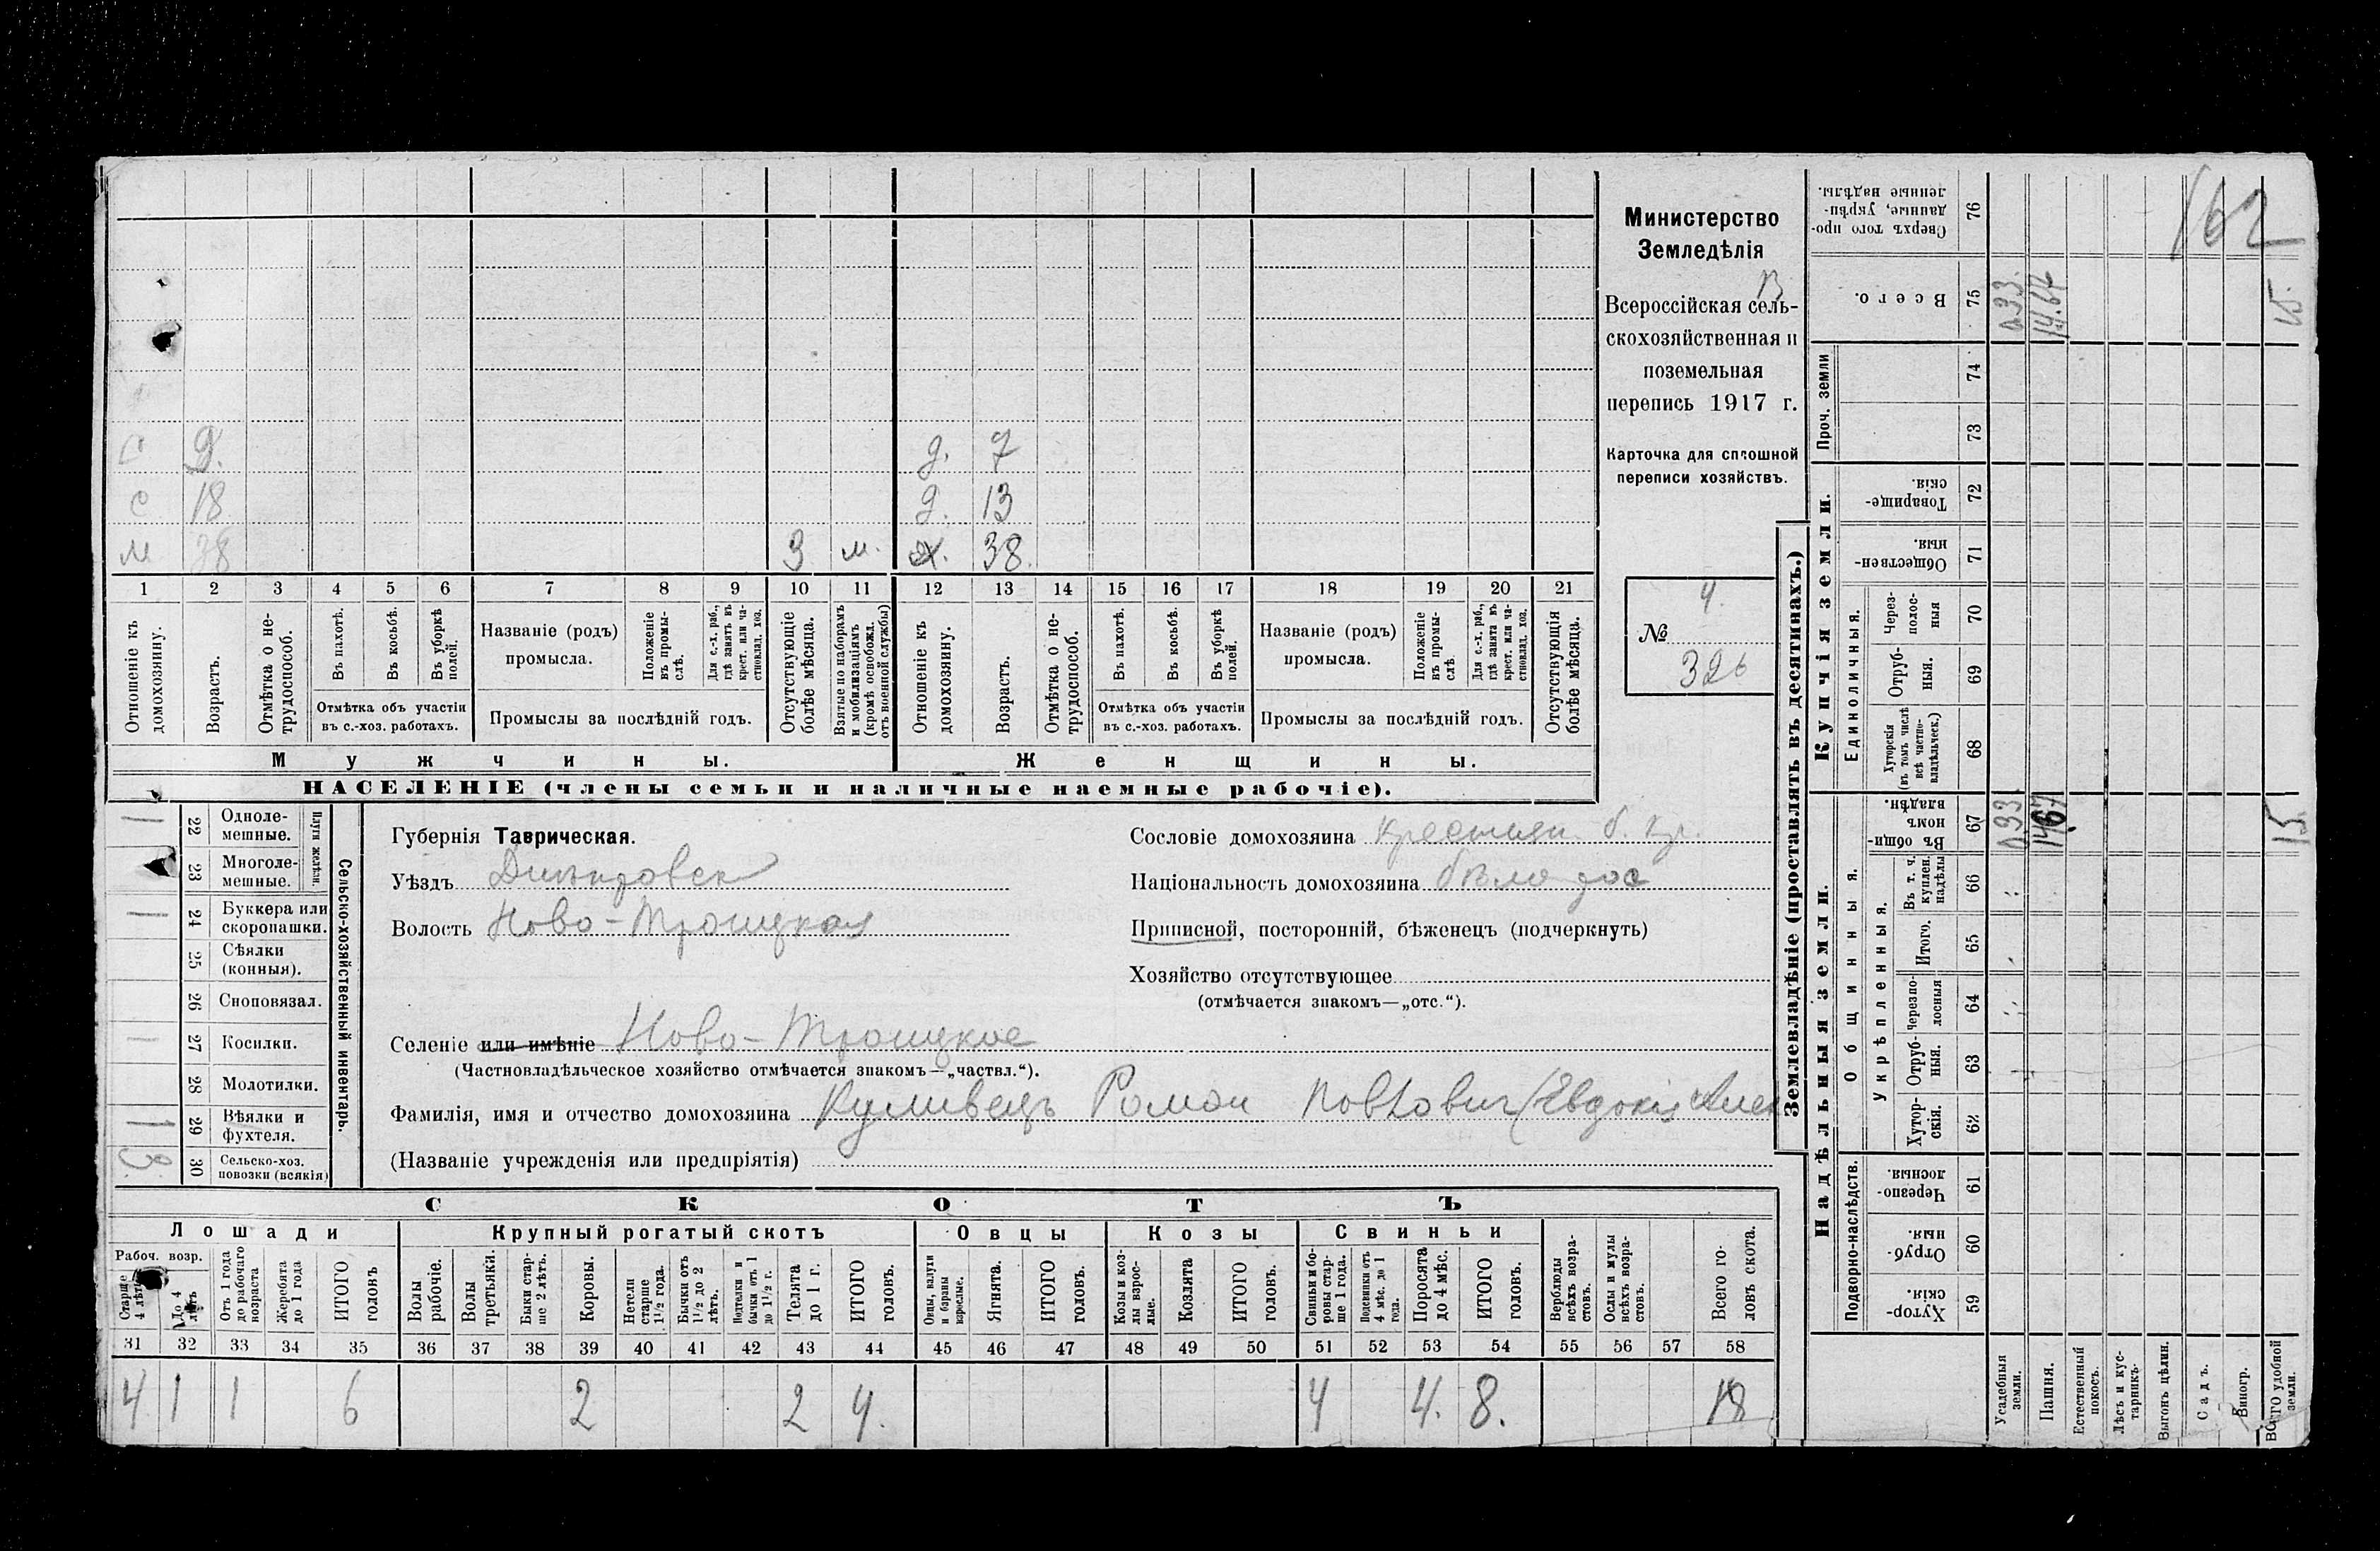 Министерство
Земледѣлія
Всероссійская сель-
скохозяйственная и
поземельная
перепись 1917 г.
Карточка для сплошной
переписи хозяйствъ.
4.
№
326
162
с 9. д. 7
с 18 д. 13
м 38 3 м. х. 38
1 2 3 4 5 6 7 8 9 10 11 12 13 14 15 16 17 18 19 20 21
Отношеніе къ домохозяину.
Возрастъ.
Отмѣтка о не-трудоспособ.
Въ пахотѣ.
Въ косьбѣ.
Въ уборкѣ полей.
Отмѣтка объ участіи въ с.-хоз. работахъ.
Названіе (родъ) промысла.
Положеніе въ промы-слѣ.
Для с.-х. раб., гдѣ занятъ въ крест. или ча-стновлад. хоз.
Промыслы за послѣдній годъ.
Отсутствующіе болѣе мѣсяца.
Взятые по наборамъ и мобилизаціямъ (кромѣ освобожд. отъ военной службы)
Отношеніе къ домохозяину.
Возрастъ.
Отмѣтка о не-трудоспособ.
Въ пахотѣ.
Въ косьбѣ.
Въ уборкѣ полей.
Отмѣтка объ участіи въ с.-хоз. работахъ.
Названіе (родъ) промысла.
Положеніе въ промы-слѣ.
Для с.-х. раб., гдѣ занята въ крест. или ча-стновлад. хоз.
Промыслы за послѣдній годъ.
Отсутствующія болѣе мѣсяца.
Мужчины. Женщины.
НАСЕЛЕНІЕ (члены семьи и наличные наемные рабочіе).
Сельско-хозяйственный инвентарь.
Плуги желѣзн.
1 22 Одноле-мешные.
23 Многоле-мешные.
1 24 Буккера или скоропашки.
25 Сѣялки (конныя).
26 Сноповязал.
1 27 Косилки.
28 Молотилки.
1 29 Вѣялки и фухтеля.
3 30 Сельско-хоз. повозки (всякія)
Губернія Таврическая.
Уѣздъ Днѣпровск
Волость Ново-Троицкая
Сословіе домохозяина крестьян.
Національность домохозяина
Приписной, посторонній, бѣженецъ (подчеркнуть)
Хозяйство отсутствующее
(отмѣчается знакомъ—„отс.“).
Селеніе или имѣніе Ново-Троицкое
(Частновладѣльческое хозяйство отмѣчается знакомъ—„частвл.“).
Фамилія, имя и отчество домохозяина Куливецъ Роман Павлович (Евдокія
(Названіе учрежденія или предпріятія)
СКОТЪ
Лошади Крупный рогатый скотъ Овцы Козы Свиньи
Рабоч. возр.
Старше 4 лѣтъ
До 4 лѣтъ
Отъ 1 года до рабочаго возраста
Жеребята до 1 года
ИТОГО головъ
Волы рабочіе.
Волы третьяки.
Быки стар-ше 2 лѣтъ.
Коровы.
Нетели старше 1½ года.
Бычки отъ 1½ до 2 лѣтъ.
Подтелки и бычки отъ 1 до 1½ г.
Телята до 1 г.
ИТОГО головъ.
Овцы, валухи и бараны взрослые.
Ягнята.
ИТОГО головъ.
Козы и коз-лы взрос-лые.
Козлята
ИТОГО головъ.
Свиньи и бо-ровы стар-ше 1 года.
Подсвинки отъ 4 мѣс. до 1 года.
Поросята до 4 мѣс.
ИТОГО головъ.
Верблюды всѣхъ возра-стовъ.
Ослы и мулы всѣхъ возра-стовъ.
Всего го-ловъ скота.
31 32 33 34 35 36 37 38 39 40 41 42 43 44 45 46 47 48 49 50 51 52 53 54 55 56 57 58
4 1 1 6 2 2 4. 4 4. 8. 18
Землевладѣніе (проставлять въ десятинахъ.)
Надѣльныя земли. Купчія земли. Проч. земли
Подворно-наслѣдств.
Общинныя.
Укрѣпленныя.
Единоличныя.
59 Хутор-скія.
60 Отруб-ныя.
61 Черезпо-лосныя.
62 Хутор-скія.
63 Отруб-ныя.
64 Черезпо-лосныя
65 Итого.
66 Въ т. ч. куплен. надѣлы
67 Въ общи-номъ владѣн. 0.33 14.67 15.
68 Хуторскія (въ томъ числѣ всѣ частно-владѣльческ.)
69 Отруб-ныя.
70 Через-полос-ныя
71 Обществен-ныя.
72 Товарище-скія.
73
74
75 Всего. 0.33. 14.67 15.
76 Сверхъ того про-данные, укрѣп-ленные надѣлы.
Усадебныя земли.
Пашня.
Естественный покосъ.
Лѣсъ и кус-тарникъ.
Выгонъ цѣлин.
Садъ.
Виногр.
ВСЕГО удобной земли.